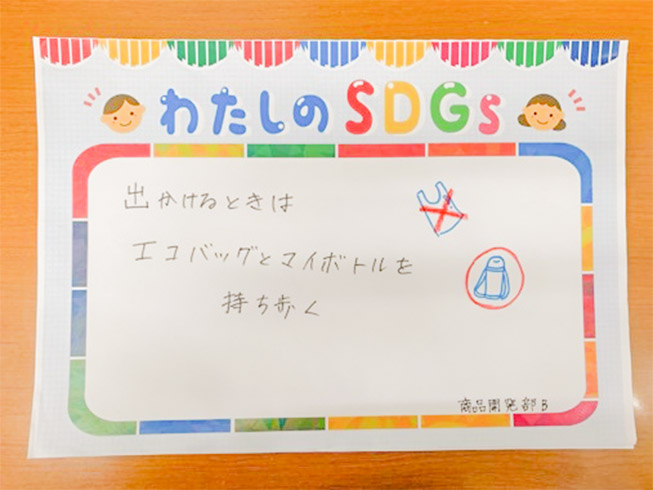 わたしのSDGs
出かけるときは
エコバッグとマイボトルを
持ち歩く
商品開発部B